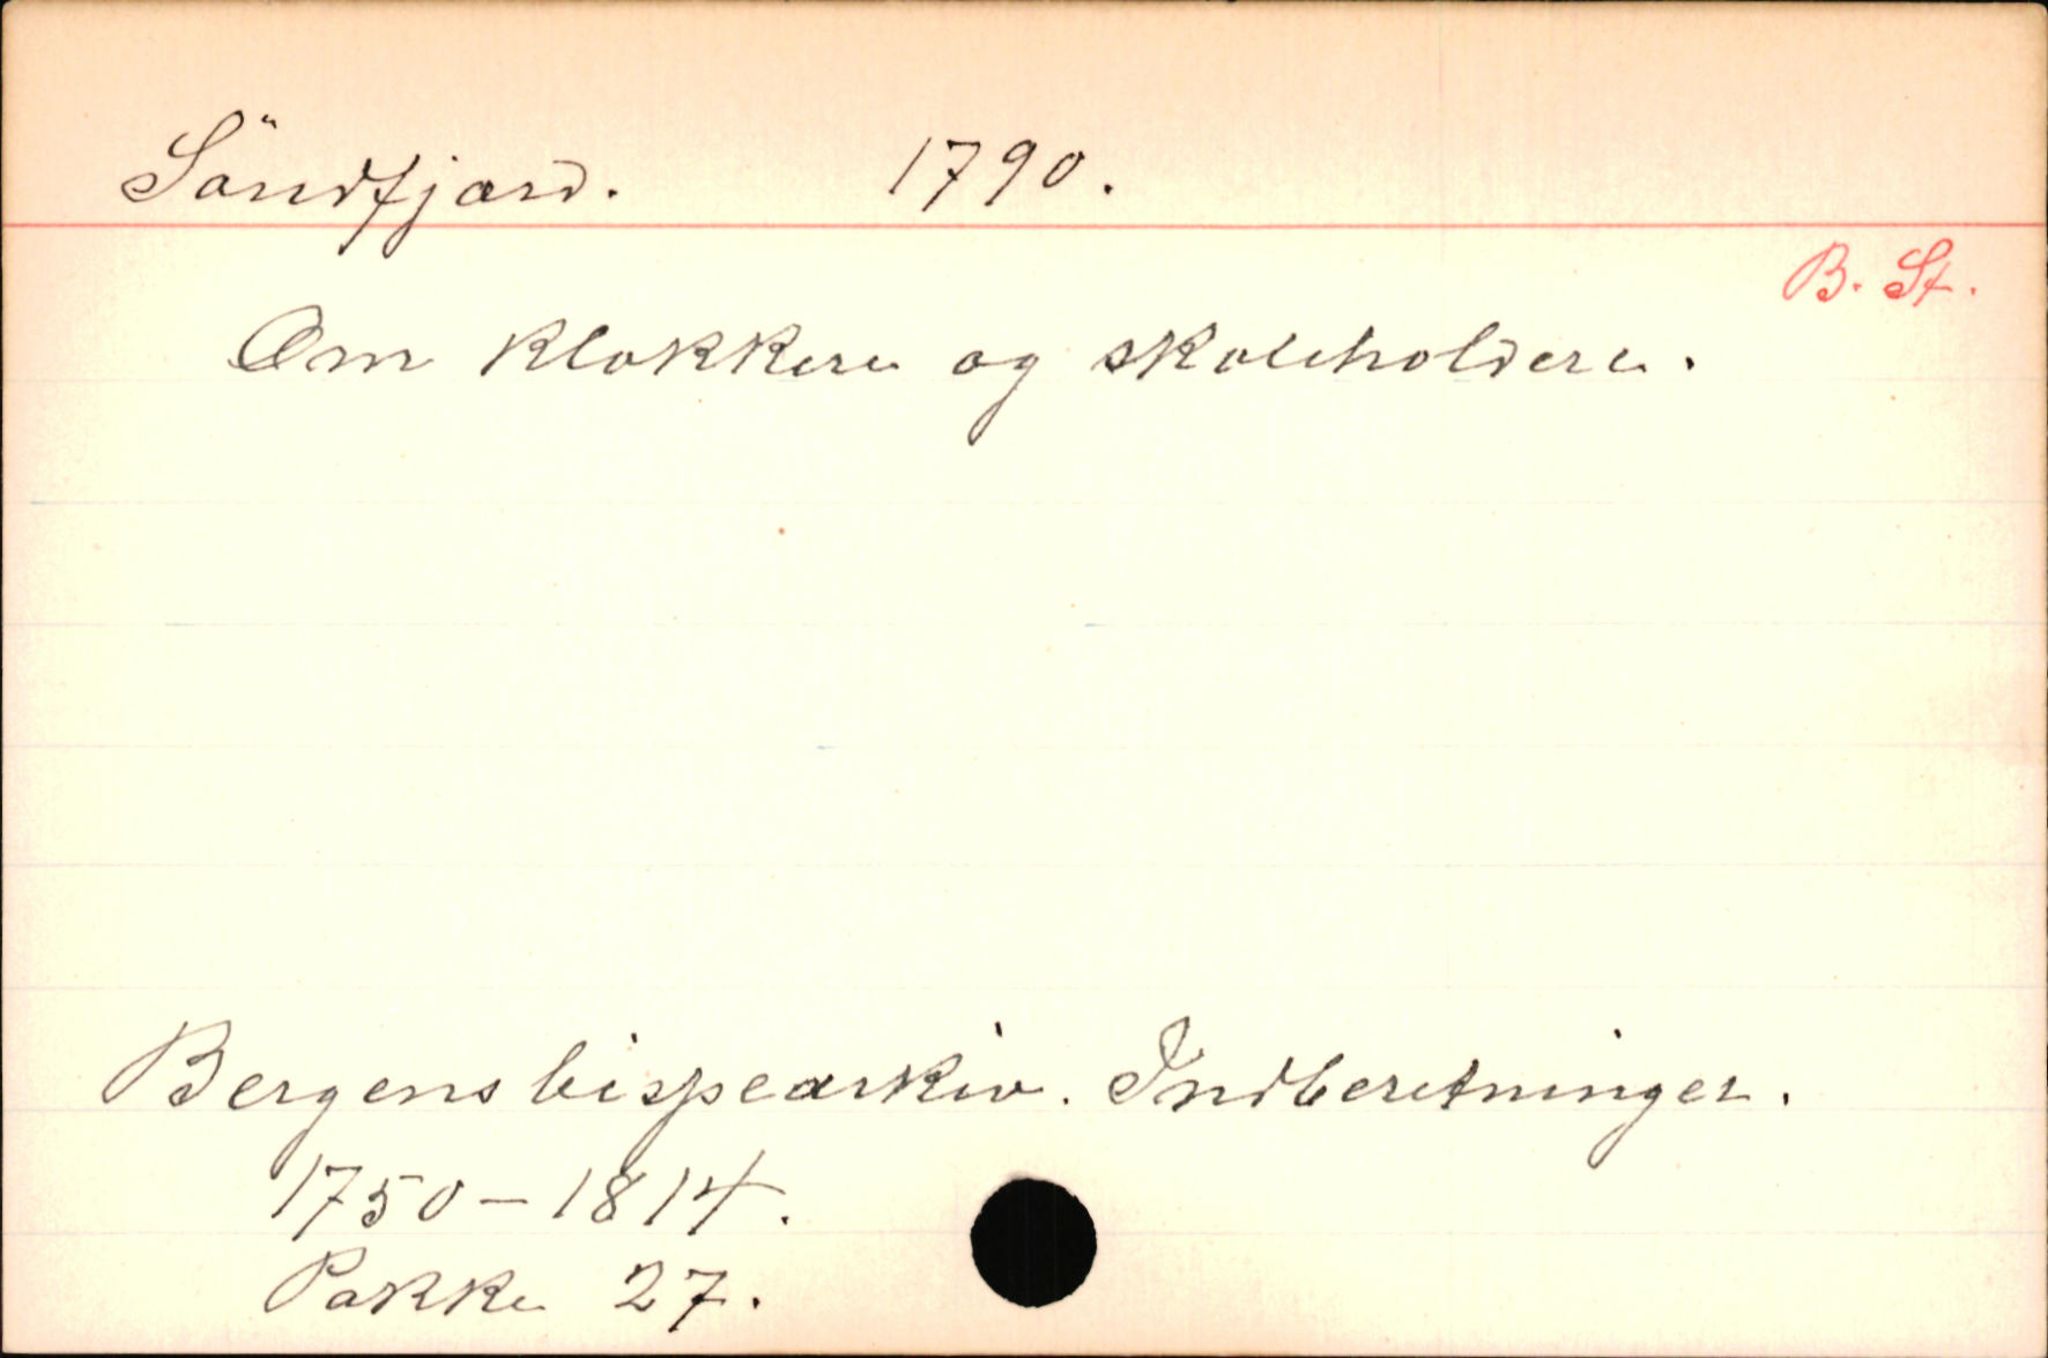 Söndfjord. 1790.
B. St.
Om klokkere og skoleholdere.
Bergens bispearkiv. Indberetninger.
1750-1814.
Pakke 27.